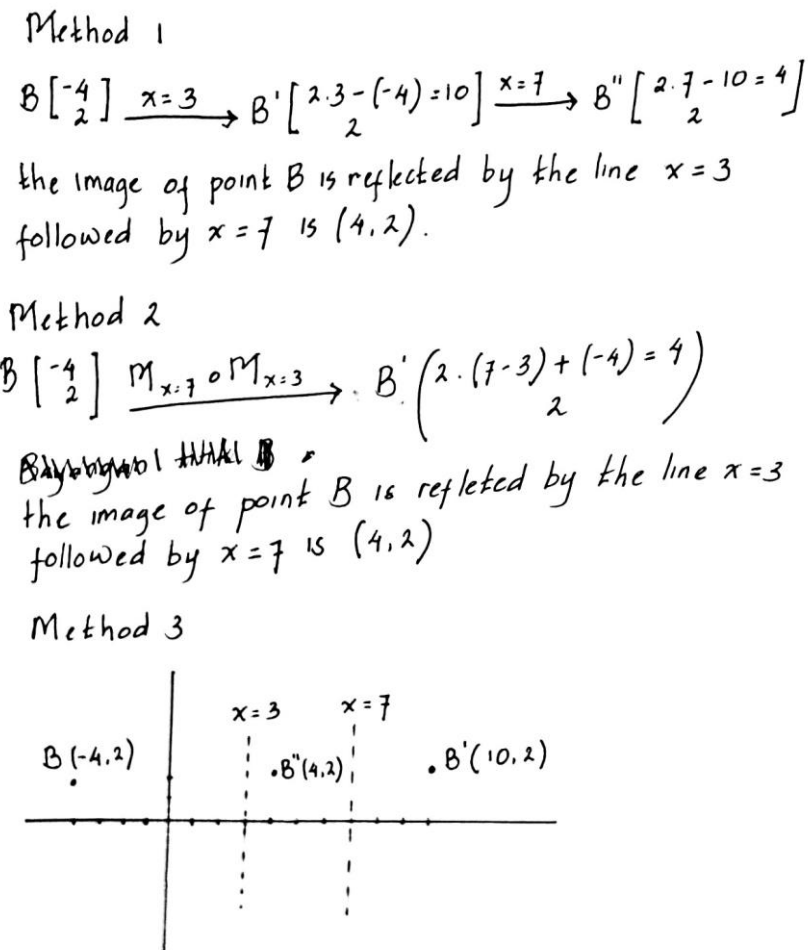 Method 1
B[-4 2] x=3 → B'[2.3-(-4)=10 2] x=7 → B"[2.7-10=4 2]
the image of point B is reflected by the line x=3
followed by x=7 is (4,2).
Method 2
B[-4 2] Mx=7 o Mx=3 → B'(2.(7-3)+(-4)=4 2)
the image of point B is refleted by the line x=3
followed by x=7 is (4,2)
Method 3
x=3 x=7
B(-4,2) B"(4,2) B'(10,2)